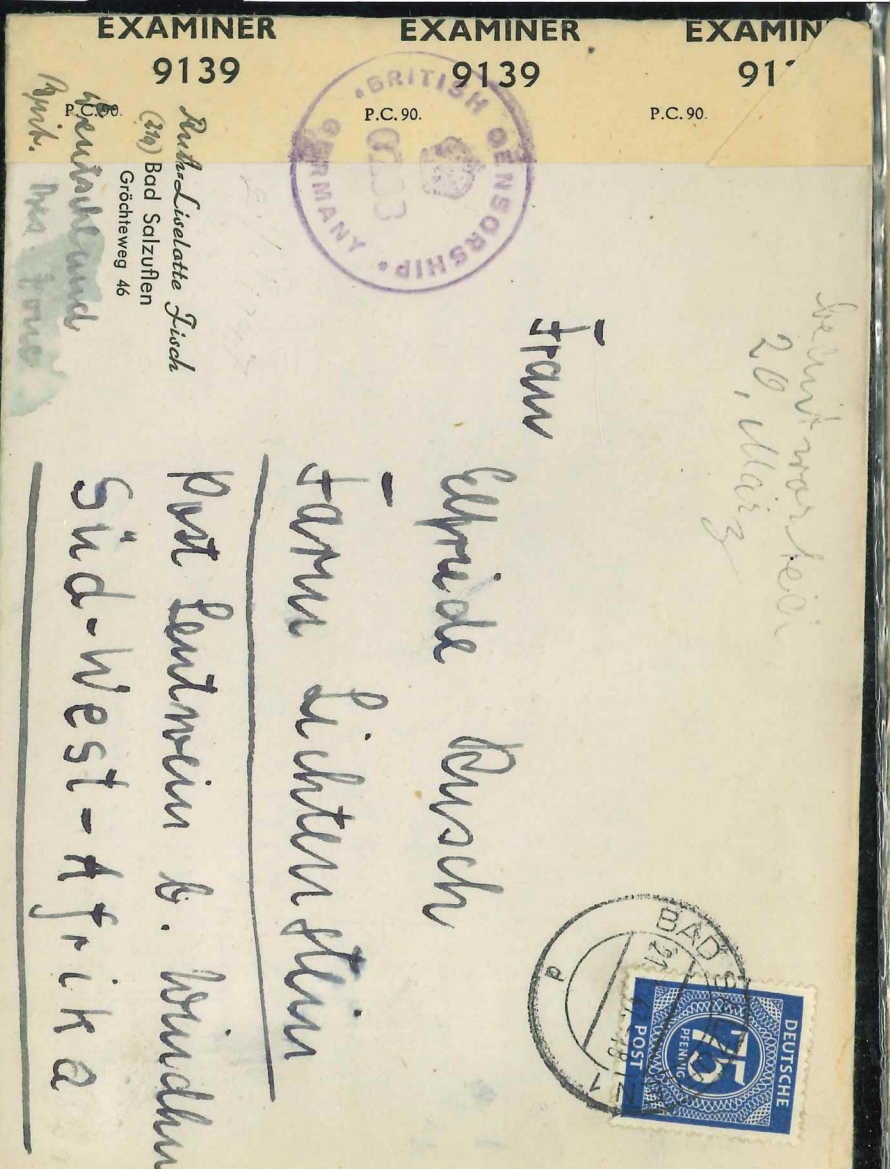 EXAMINER EXAMINER EXAMIN
9139 9139 91
P.C.90. P.C. 90. P.C. 90.
BRITISH CENSORSHIP
GERMANY
Ruth-Liselotte Fisch
Bad Salzuflen
Gröchteweg 46
Deutschland
Brit.
beantwortet
20. März
Frau
Elfriede Rusch
Farm Lichtenstein
Post Leutwein b. Windhu
Süd-West-Afrika
BAD
21
DEUTSCHE
75
PFENNIG
POST